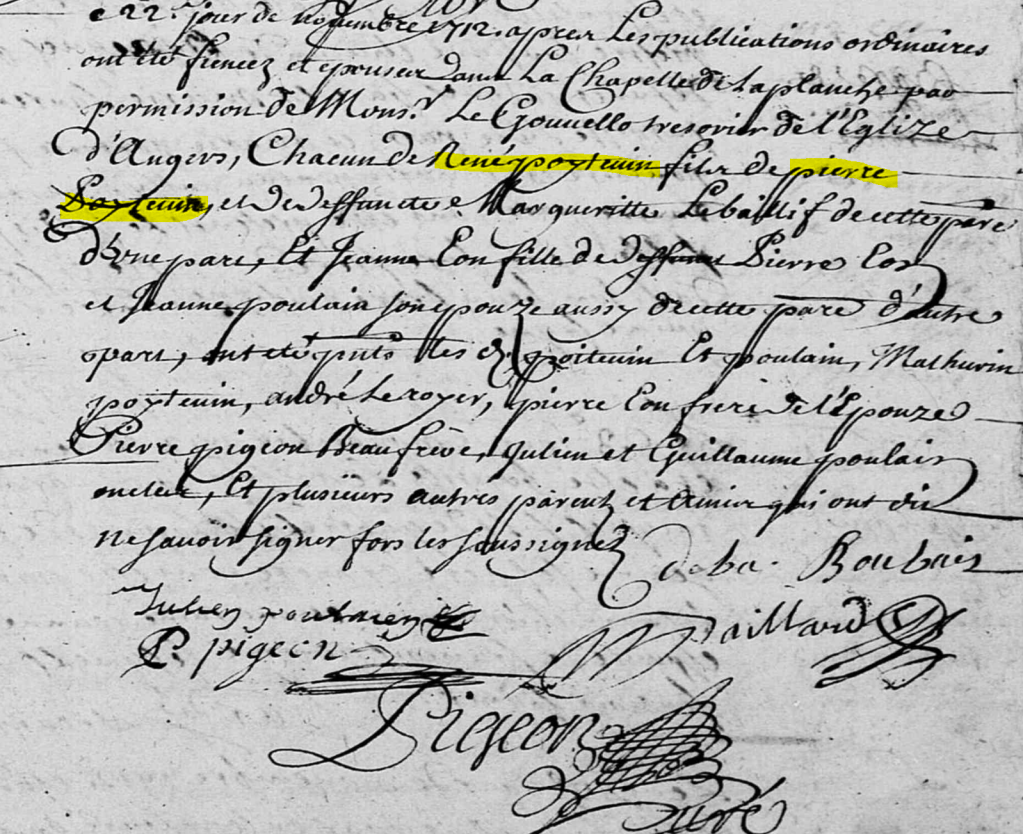 e 22.e jour de novembre 1712. apres Les publications ordinaires
ont été fiencez et epousez dans La Chapelle de la planche par
permission de Mons.r Le Gouvello tresorier de l'Eglize
d'Angers, Chacun de René poytevin fils de pierre
Poytevin, et de deffuncte Margueritte Lebaillif de cette parr
d'une part, Et Jeanne Lon fille de deffunct Pierre Lon
et Jeanne poulain son epouze aussy de cette parr d'autre
part, ont été pnts les dz poitevin Et poulain, Mathurin
poytevin, andré Leroyer, pierre Lon frere de l'Epouze
Pierre pigeon Beaufrere, Julien et Guillaume poulain
oncles, Et plusieurs autres parentz et amis qui ont dit
ne savoir signer fors les soussignez
Julien poulain
P pigeon
Gaillard
Pigeon
Curé